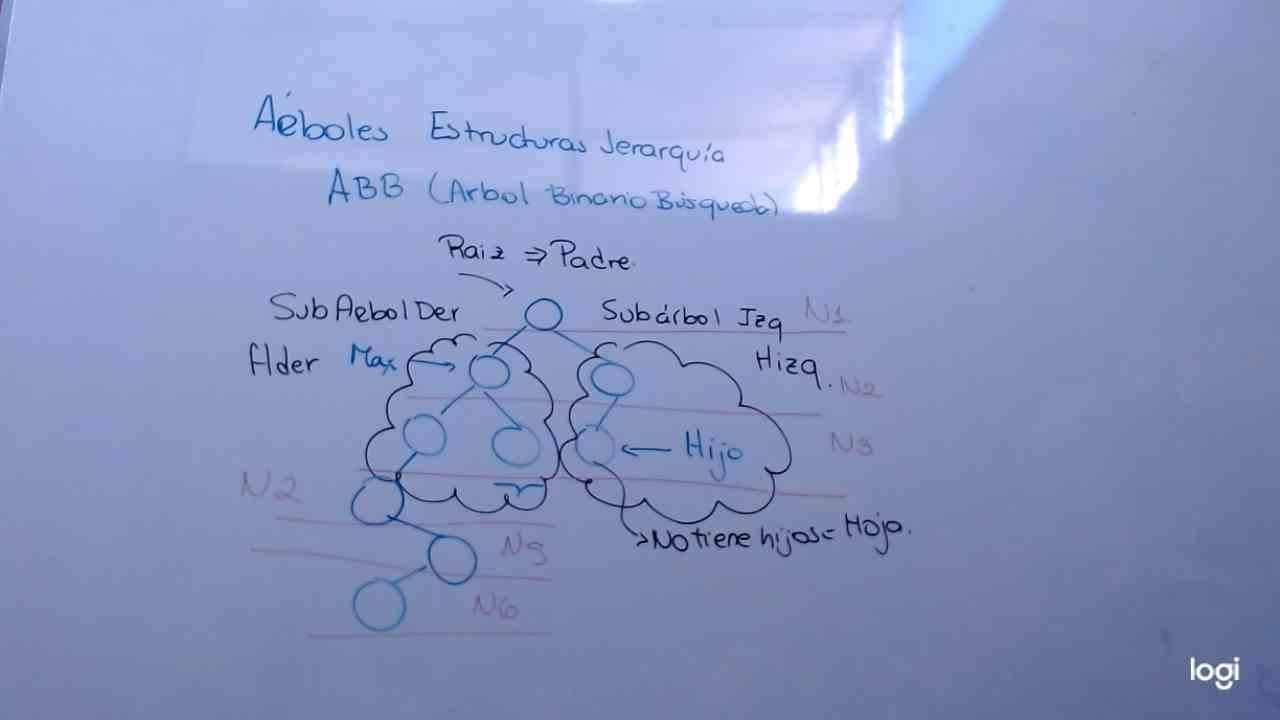 Aéboles Estructuras Jerarquía
ABB (Arbol Binario Búsqueda)
Raiz ⇒ Padre.
SubAebol Der
Subárbol Izq
N1
Hder
Max
Hizq.
N2
N3
Hijo
N2
No tiene hijos = Hoja.
N5
N6
logi